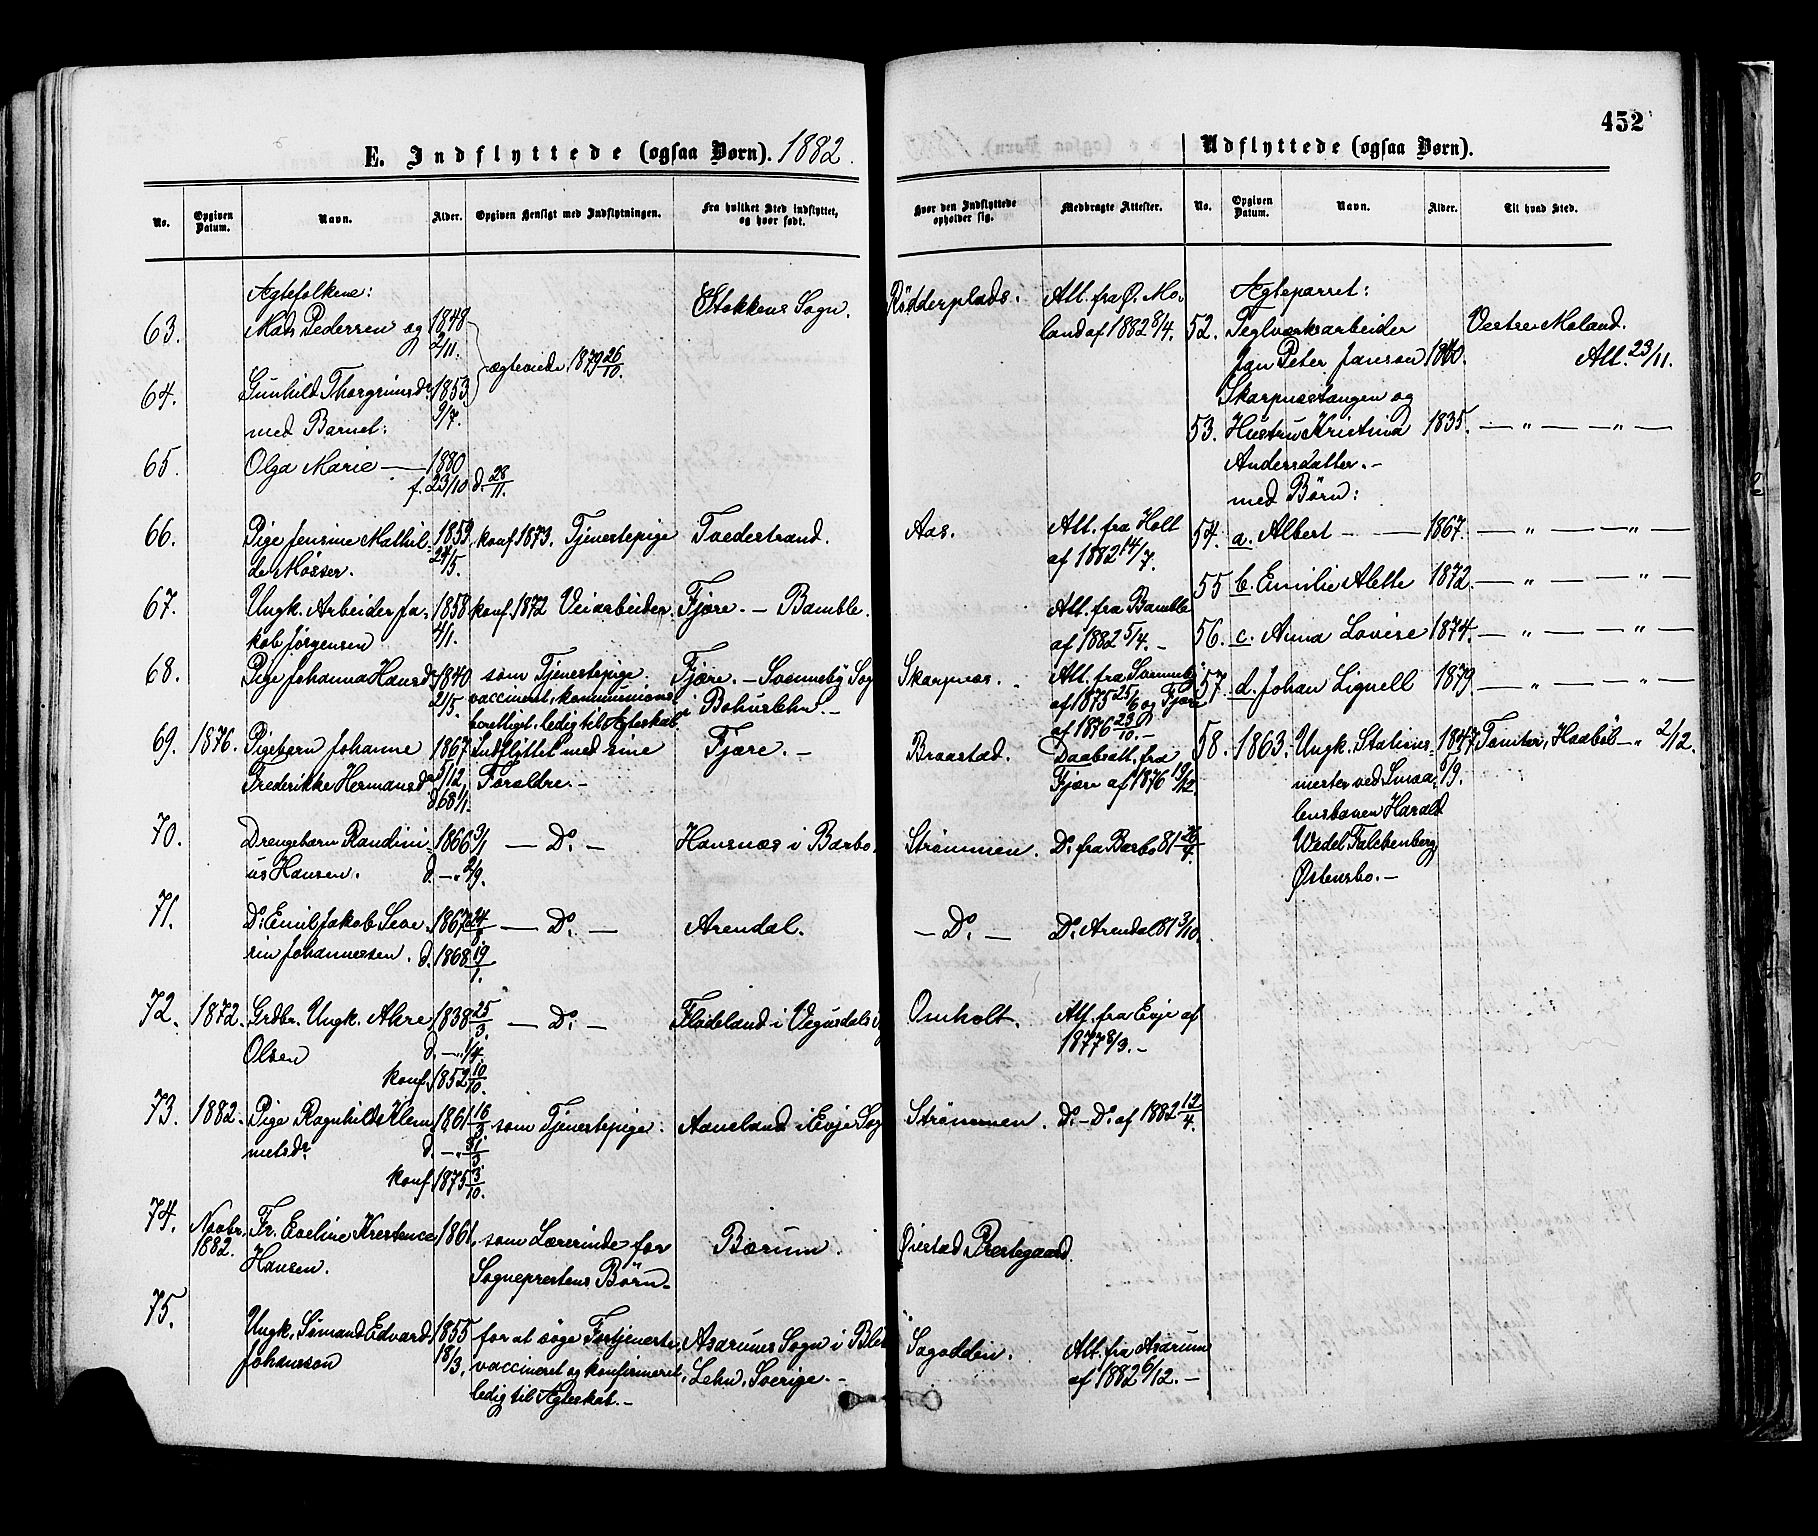 452
E. Indflyttede (ogsaa Børn). 1882.
No. Opgiven Datum. Navn. Alder. Opgiven Hensigt med Indflytningen. Fra hvilket Sted indflyttet, og hvor født. Hvor den Indflyttede opholder sig. Medbragte Attester.
Ægtefolkene:
63. Mads Pedersen og 1848 2/11. Stokkens Sogn. Rødderplads. Att. fra Ø. Mo-
land af 1882 8/4.
ægteviede 1879 26/10.
64. Gunhild Thorgrimsdr 1853 9/7.
med Barnet:
65. Olga Marie — 1880
f. 23/10 d. 28/11.
66. Pige Jensine Mathil- 1859 24/5. konf. 1873. Tjenestepige Tvedestrand. Aas. Att. fra Holt
de Møsser. af 1882 14/7.
67. Ungk. Arbeider Ja- 1858 4/1. konf. 1872 Veiarbeider. Fjære. – Bamble. Att. fra Bamble
kob Jørgensen af 1882 5/4. –
68. Pige Johanna Hansdr 1840 2/5. som Tjenestepige. Fjære. – Svenneby Sog Skarpnæs. Att. fra Svenneby
vaccineret, kommunions- i Bohuslehn. – af 1875 25/6 og Fjære
berettiget, ledig til Ægteskab. af 1876 23/10. –
69. 1876. Pigebarn Johanne 1867 5/12 Indflyttet med sine Fjære. – Braastad. Daabsatt. fra
Frederikke Hermansdr d. 68 1/1. Forældre. – Fjære af 1876 19/12.
70. Drengebarn Randini- 1866 3/1 — Do. – Havsnæs i Barbo. Strømmen. Do. fra Barbo 81 26/4.
us Hansen. d. –„ 2/9.
71. Do. Emil Jakob Seve- 1867 24/8 — Do. — Arendal. – Do. – Do. Arendal 81 3/10.
rin Johannessen. d. 1868 19/1.
72. 1872. Grdbr. Ungk. Akre 1838 25/3. — Do. – Flodeland i Vegusdals Omholt. Att. fra Evje af
Olsen d. –„ 1/4 1877 8/3. –
konf. 1852 10/10.
73. 1882. Pige Ragnhild Klem- 1861 16/3 som Tjenestepige. Aaneland i Evje Sog Strømmen. Do. – Do. af 1882 12/4.
metsdr. d. –„ 31/3
konf. 1875 3/10.
74. Novbr. 1882. Fr. Eveline Krestence 1861. som Lærerinde for Bærum. Øiestad Prestegaard.
Hansen. Sogneprestens Børn.
75. Ungk. Sømand Edvard 1855 18/3. for at søge Fortjeneste, Asarums Sogn i Blek Sagodden. Att. fra Asarum
Johansson vaccineret og konfirmeret, Lehn, Sverige. – af 1882 6/12. –
ledig til Ægteskab. –
Udflyttede (ogsaa Børn).
No. Opgiven Datum. Navn. Alder. Til hvad Sted.
Ægteparret:
52. Teglværksarbeider Vestre Moland.
Jan Peter Janson 1840. Att. 23/11.
Skarpnæstangen og
53. Hustru Kristina 1835. — „ — — „ —
Andersdatter. –
med Børn:
54. a. Albert – — 1867. — „ — — „ —
55 b. Emilie Alette 1872. — „ — — „ —
56. c. Anna Lovise 1874. — „ — — „ —
57. d. Johan Lignell 1879. — „ — — „ —
58. 1863. Ungk. Stations- 1847 6/9. Tomter, Haabøl –„ 2/12.
mester ved Smaa-
lensbanen Harald
Wedel Falchenberg
Østensbo. –